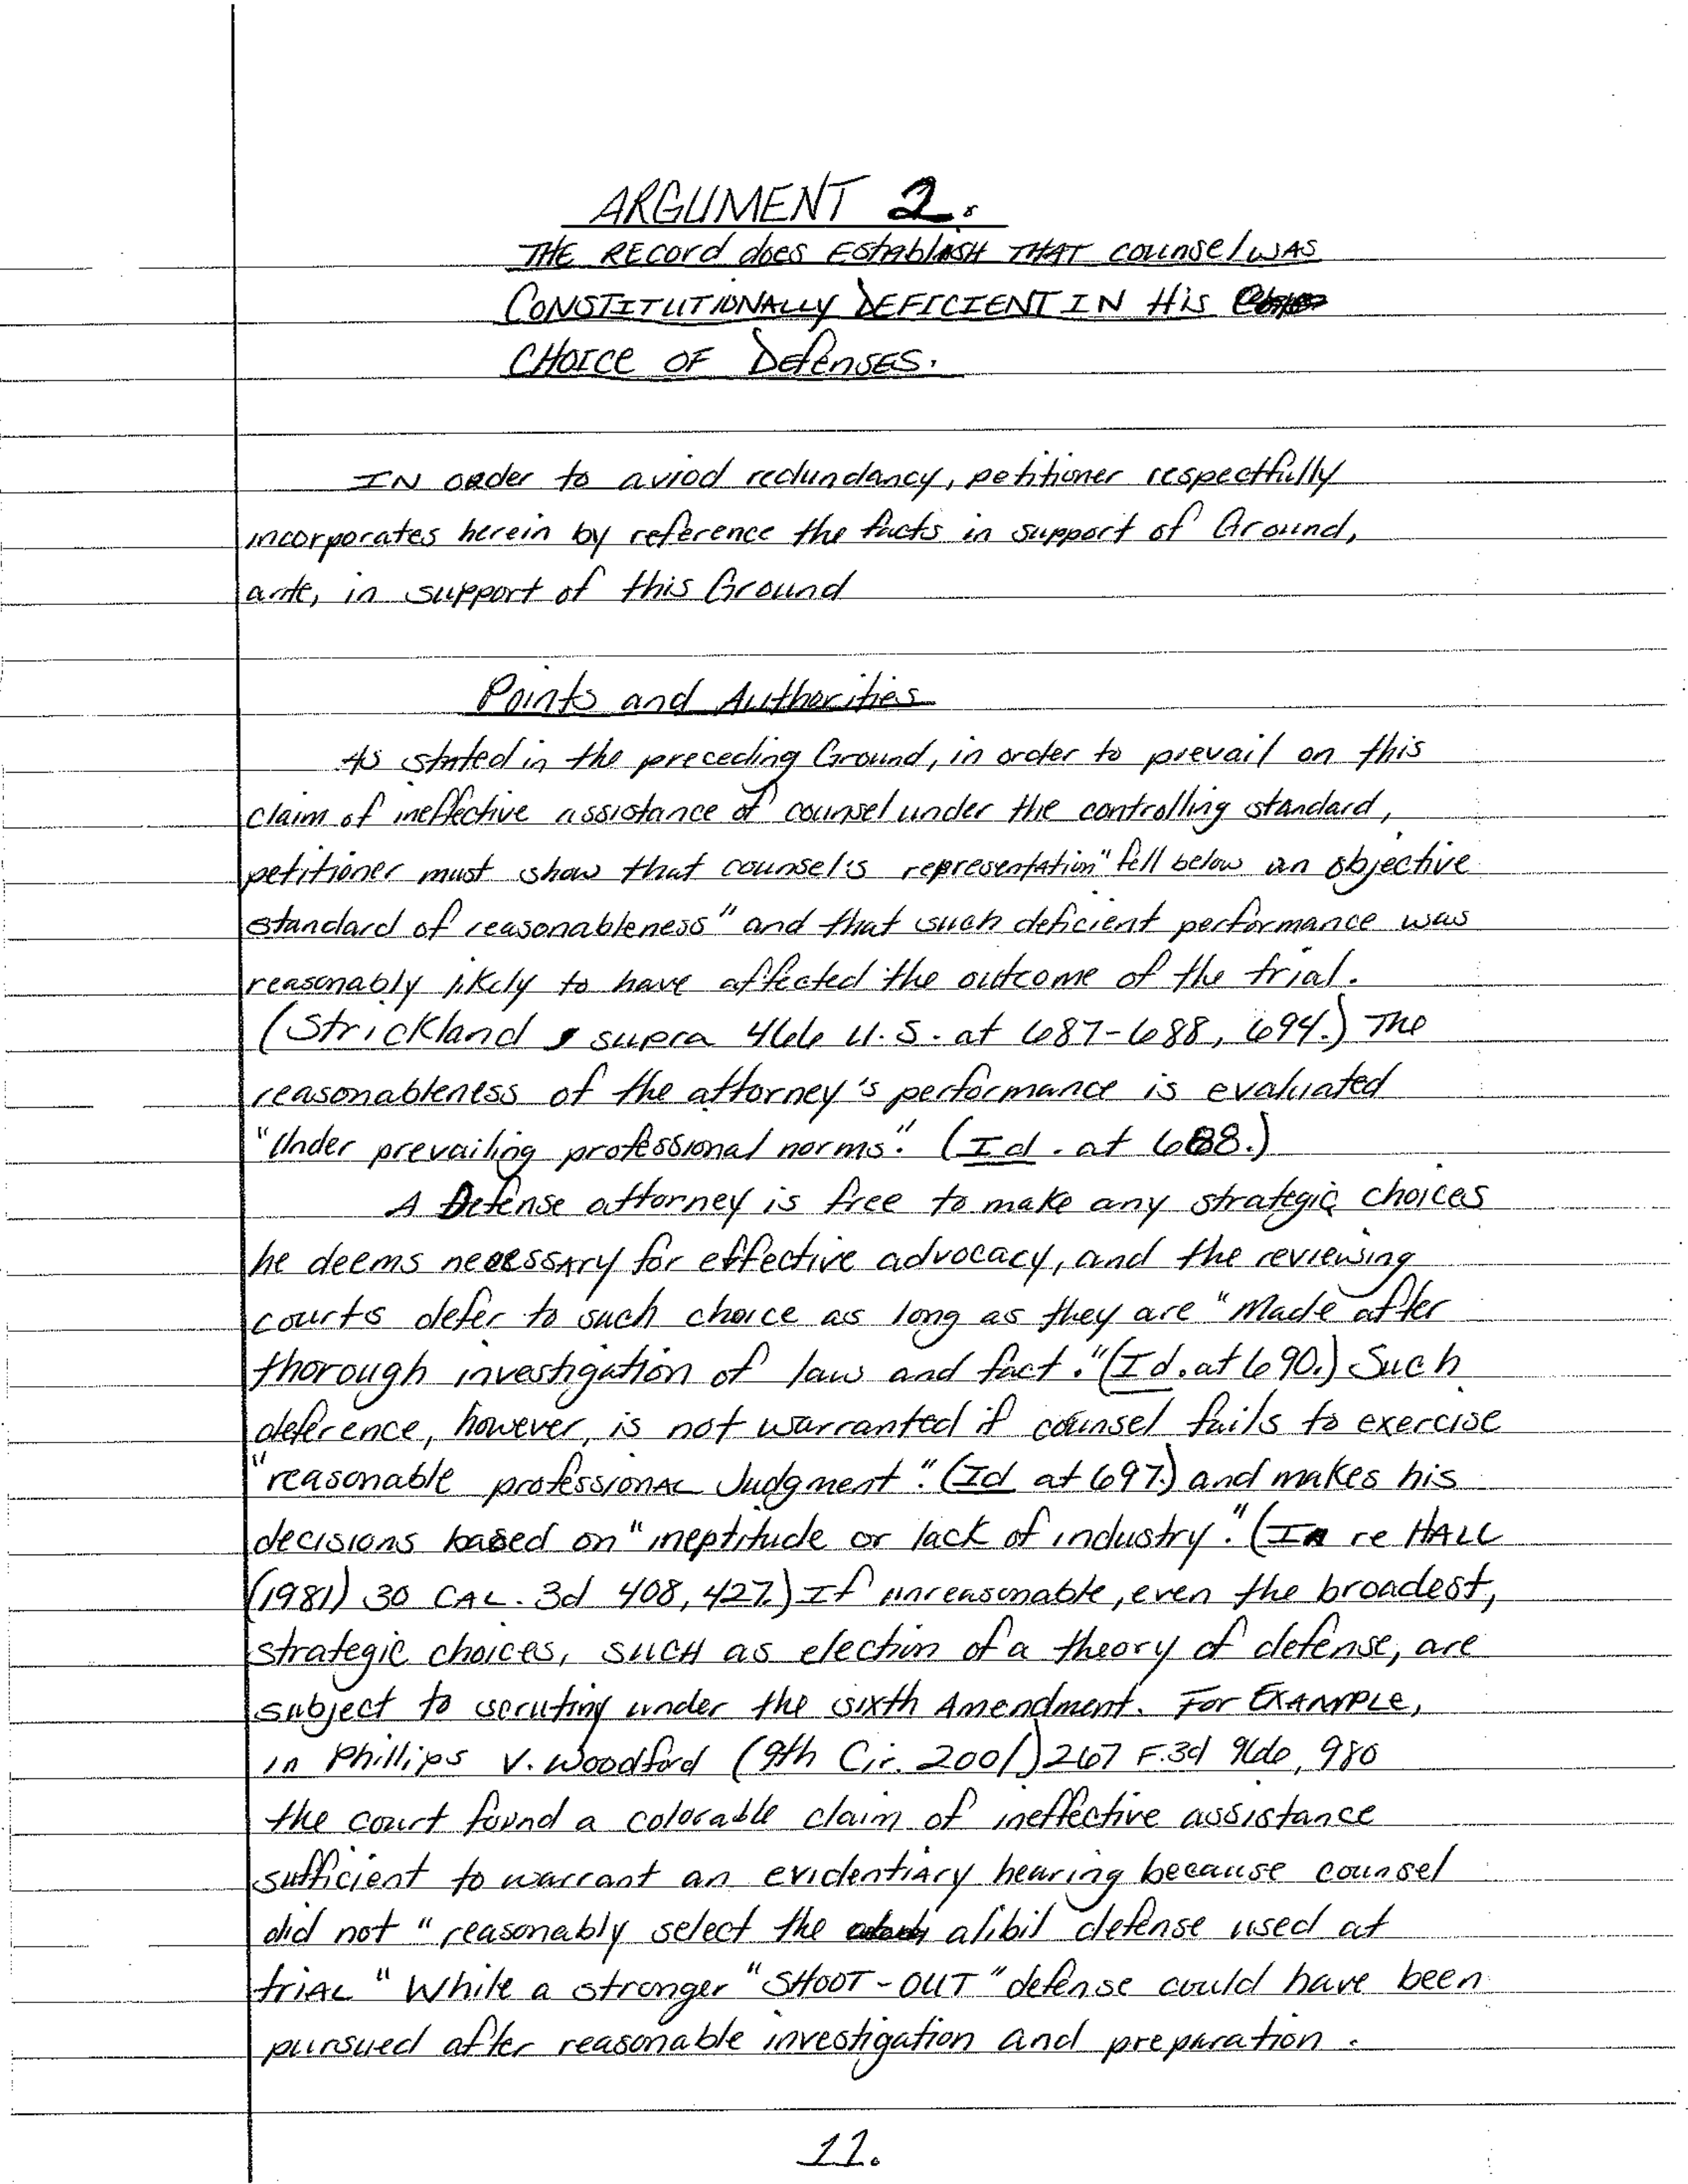 ARGUMENT 2.
THE RECord does EStablISH THAT counsel WAS
CONSTITUTIONALLY DEFICIENT IN His
CHOICE OF DefenSES.
IN order to aviod redundancy, petitioner respectfully
incorporates herein by reference the facts in support of Ground,
ante, in support of this Ground
Points and Authorities
As stated in the preceding Ground, in order to prevail on this
claim of ineffective assistance of counsel under the controlling standard,
petitioner must show that counsel's representation "fell below an objective
standard of reasonableness" and that such deficient performance was
reasonably likely to have affected the outcome of the trial.
(Strickland, supra 466 U.S. at 687-688, 694.) The
reasonableness of the attorney's performance is evaluated
"Under prevailing professional norms". (Id. at 688.)
A Defense attorney is free to make any strategic choices
he deems necessary for effective advocacy, and the reviewing
courts defer to such choice as long as they are "Made after
thorough investigation of law and fact." (Id. at 690.) Such
deference, however, is not warranted if counsel fails to exercise
"reasonable professional Judgment". (Id at 697.) and makes his
decisions based on "ineptitude or lack of industry." (In re HALL
(1981) 30 CAL. 3d 408, 427.) If unreasonable, even the broadest,
strategic choices, SUCH as election of a theory of defense, are
subject to scrutiny under the sixth Amendment. For EXAMPLE,
in Phillips V. Woodford (9th Cir. 2001) 267 F.3d 966, 980
the court found a colorable claim of ineffective assistance
sufficient to warrant an evidentiary hearing because counsel
did not "reasonably select the alibil defense used at
triAL" While a stronger "SHOOT-OUT" defense could have been
pursued after reasonable investigation and preparation.
11.